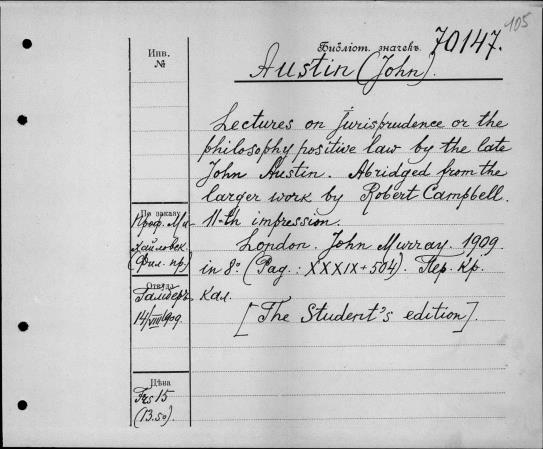 105
Инв. №
Библіот. значекъ.
70147.
Austin (John).
Lectures on Jurisprudence or the
philosophy positive law by the late
John Austin. Abridged from the
larger work by Robert Campbell.
11-th impression.
London. John Murray. 1909
in 8o. (Pag.: XXXIX+504). Пер. кр.
кал.
[The Student's edition].
По заказу
Проф. Ми-
хайловск.
(Фил. пр.)
Откуда
14/VIII 1909.
Цѣна
Frs 15
(13.50).